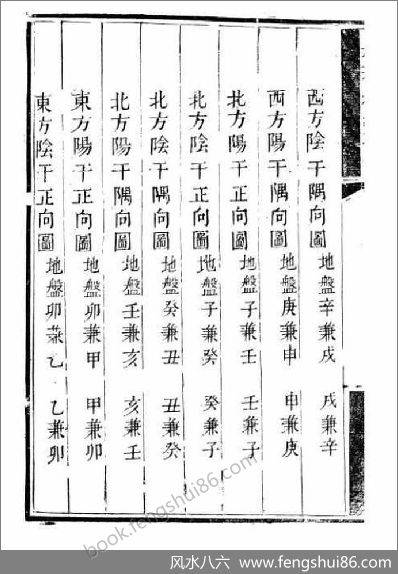 西方陰干隅向圖 地盤辛兼戌 戌兼辛
西方陽干隅向圖 地盤庚兼申 申兼庚
北方陽干正向圖 地盤子兼壬 壬兼子
北方陰干正向圖 地盤子兼癸 癸兼子
北方陰干隅向圖 地盤癸兼丑 丑兼癸
北方陽干隅向圖 地盤壬兼亥 亥兼壬
東方陽干正向圖 地盤卯兼甲 甲兼卯
東方陰干正向圖 地盤卯兼乙 乙兼卯
book.fengshui86.com
风水八六 www.fengshui86.com